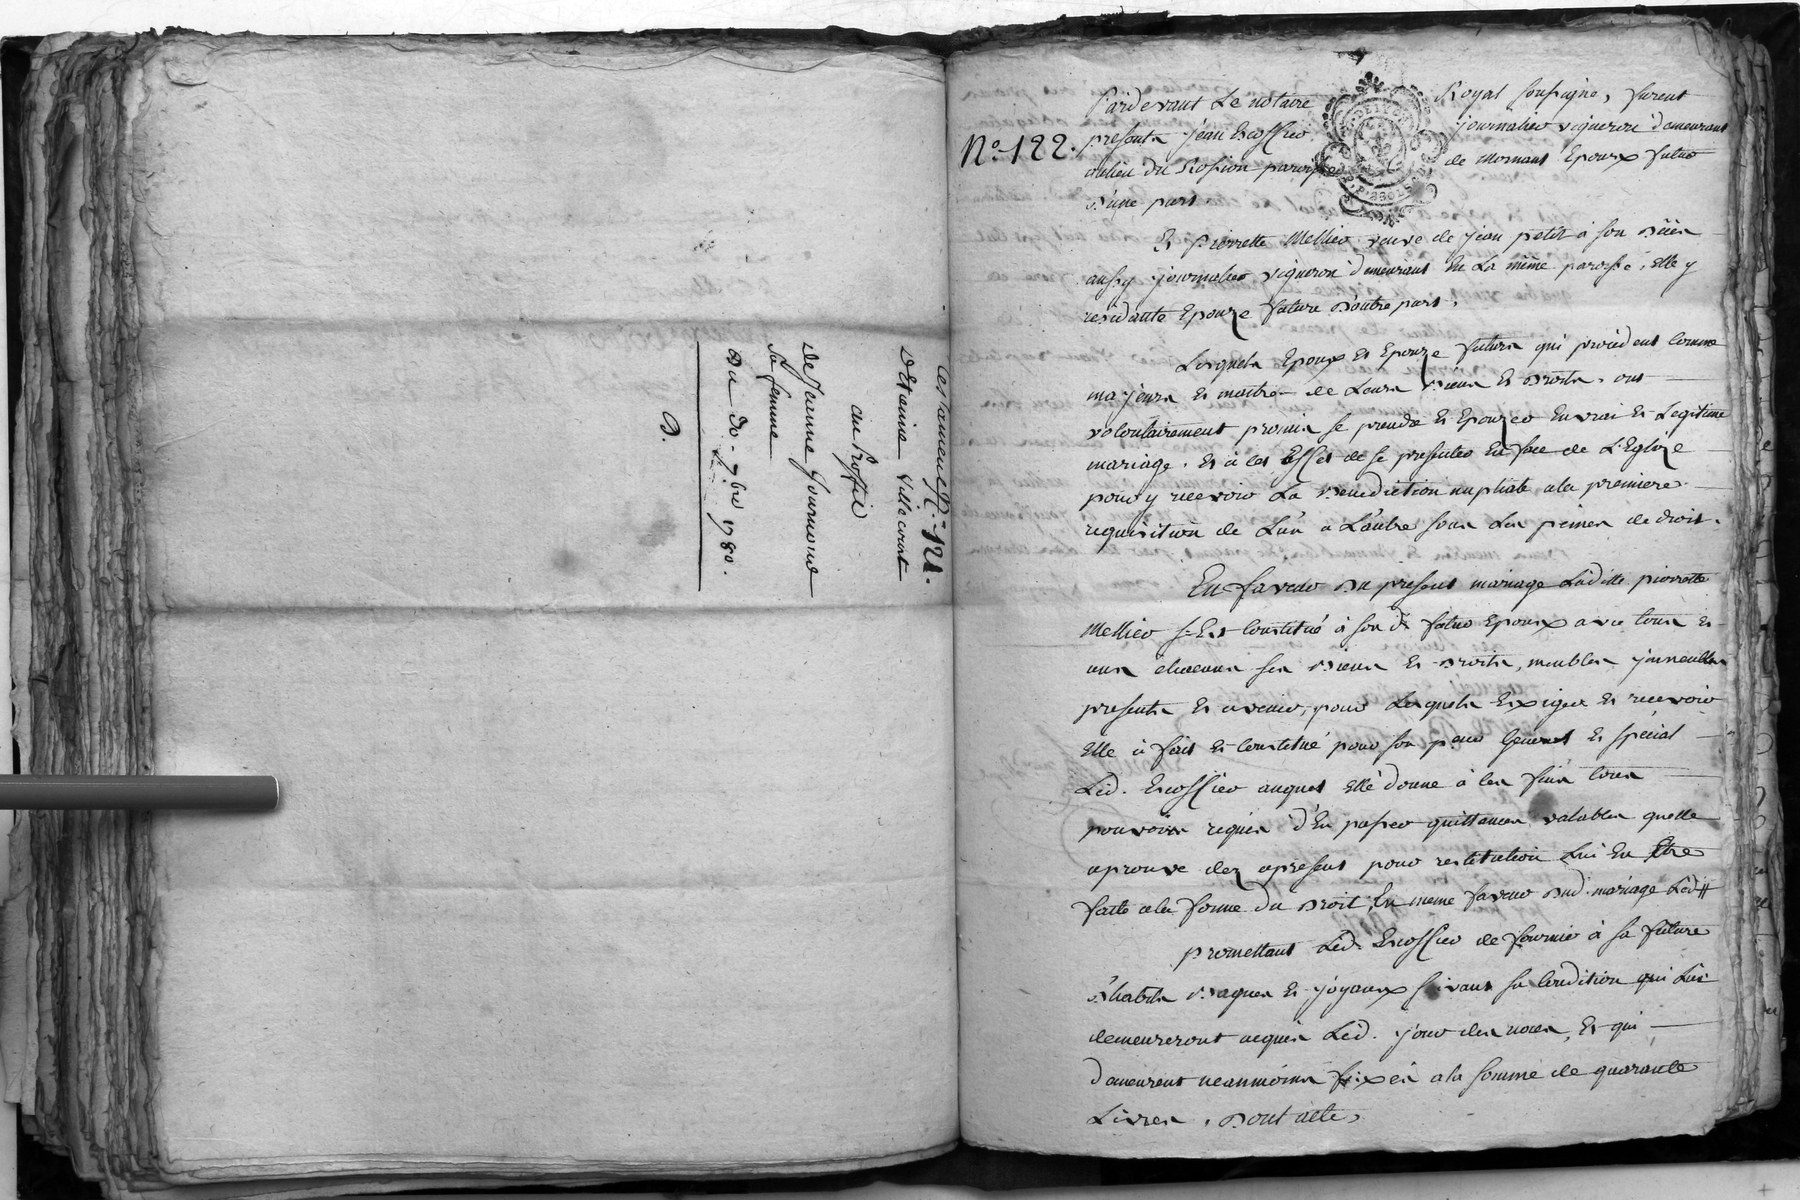 testament N.º 121.
D'Etaine Villecourt
au proffit
de Jeanne journoud
sa femme
du 30. 7.bre 1780.
N.º 122.
Pardevant Le notaire Royal soussigné, furent
presents jean Escoffier journalier vigneron demeurant
au lieu du Rossion paroisse de Mornant Epoux futur
d'une part.
Et pierrette Mellier veuve de jean petit a son vivant
aussy journalier vigneron demeurant En La même paroisse, Elle y
residante Epouze future d'autre part.
Lesquels Epoux Et Epouze futurs qui procedent comme
majeurs Et maitres de Leurs biens Et droits, ont
volontairement promis se prendre Et Epouzer En vrai Et Legitime
mariage. Et à cet Effet de se presenter En face de L'Eglize
pour y recevoir La benediction nuptiale a la premiere
requisition de L'un a L'autre sous Les peines de droit.
En faveur du present mariage Ladite pierrette
Mellier s'Est constitué à son d. futur Epoux avec tous Et
uns chacuns ses biens Et droits, meubles immeubles
presents Et avenir, pour Lesquels Exiger Et recevoir
Elle à fait Et constitué pour son pcur General Et special
Led. Escoffier auquel Elle donne à ces fins tous
pouvoirs requis d'En passer quittances valables quelle
aprouve dez apresent pour restitution Lui En Etre
faite a la forme du Droit, En meme faveur dud. mariage Led.
promettant Led. Escoffier de fournir à sa future
d'habits bagues Et joyaux suivant sa condition qui Lui
demeureront acquis Led. jour des noces, Et qui
demeurent neanmoins fixés a la somme de quarante
Livres, dont acte,